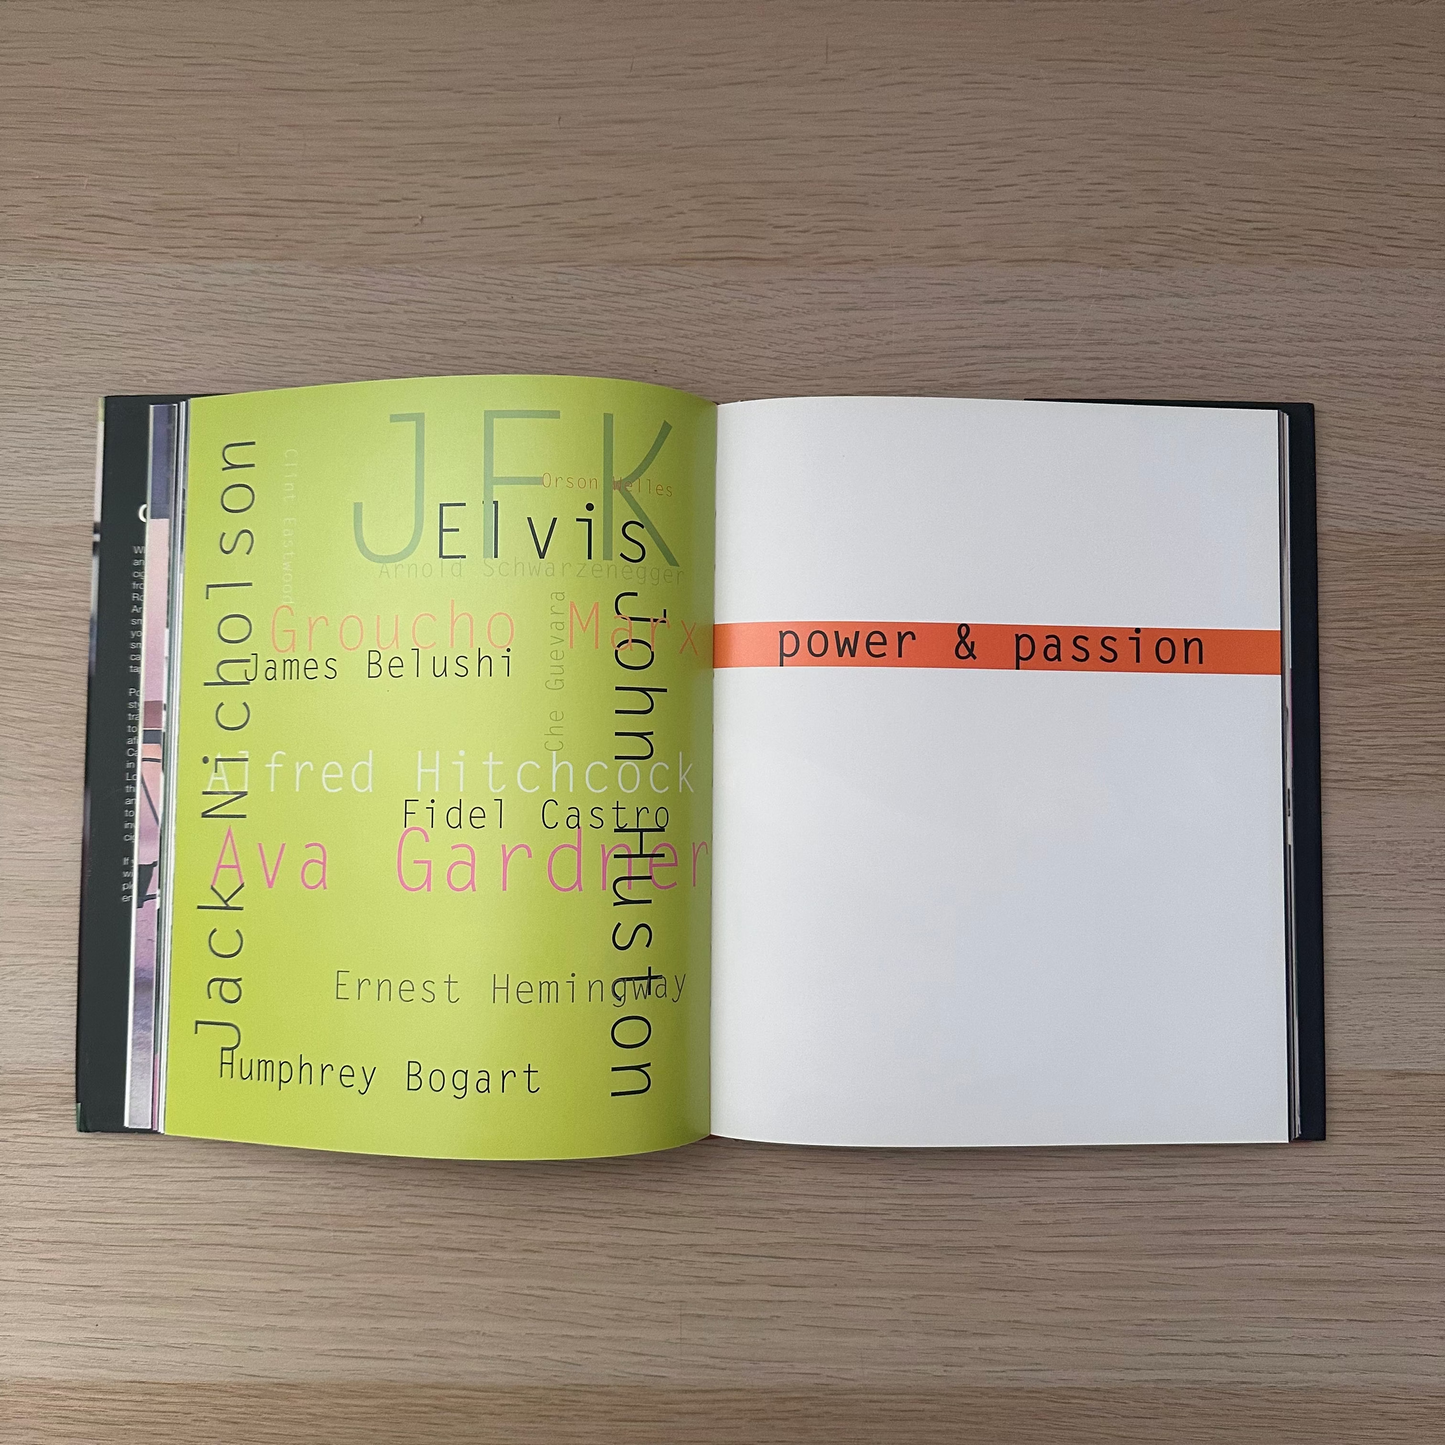 JFK
Orson Welles
Elvis
Arnold Schwarzenegger
Clint Eastwood
Jack Nicholson
Groucho Marx
James Belushi
Che Guevara
John Huston
Alfred Hitchcock
Fidel Castro
Ava Gardner
Ernest Hemingway
Humphrey Bogart
power & passion